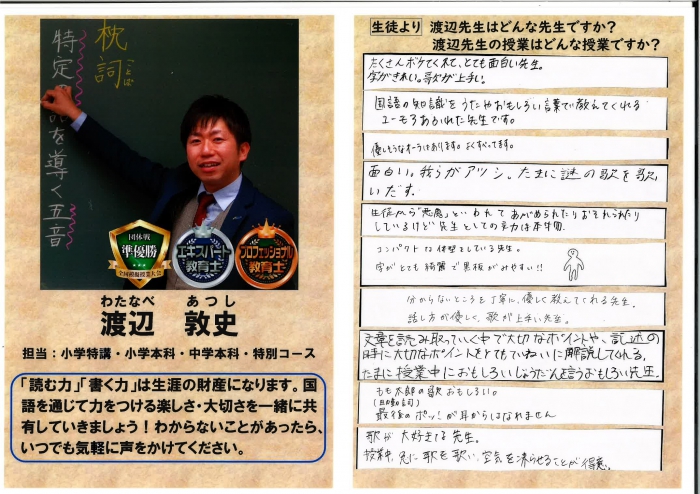 枕詞
ことば
特定の語を導く五音
団体戦
準優勝
全国模擬授業大会
エキスパート
教育士
プロフェッショナル
教育士
わたなべ あつし
渡辺 敦史
担当：小学特講・小学本科・中学本科・特別コース
「読む力」「書く力」は生涯の財産になります。国
語を通じて力をつける楽しさ・大切さを一緒に共
有していきましょう！わからないことがあったら、
いつでも気軽に声をかけてください。
生徒より 渡辺先生はどんな先生ですか？
渡辺先生の授業はどんな授業ですか？
たくさんボケてくれて、とても面白い先生。
字がきれい。歌が上手い。
国語の知識をうたやおもしろい言葉で教えてくれる
ユーモアあふれた先生です。
優しそうなオーラはあります。よくすべってます。
面白い。我らがアツシ。たまに謎の歌を歌
いだす。
生徒から「悪魔」といわれてあがめられたりおそれられたり
しているけど先生としての実力は本物
コンパクトな体型をしている先生。
字がとても綺麗で黒板がみやすい!!
分からないところを丁寧に、優しく教えてくれる先生。
話し方が優しく、歌が上手い先生。
文章を読み取っていく中で大切なポイントや、記述の
時に大切なポイントをとてもていねいに解説してくれる。
たまに授業中におもしろいじょうだんを言うおもしろい先生。
もも太郎の歌おもしろい。
(助動詞)
最後のポッ！が耳からはなれません
歌が大好きな先生。
授業中、急に歌を歌い、空気を凍らせることが得意。